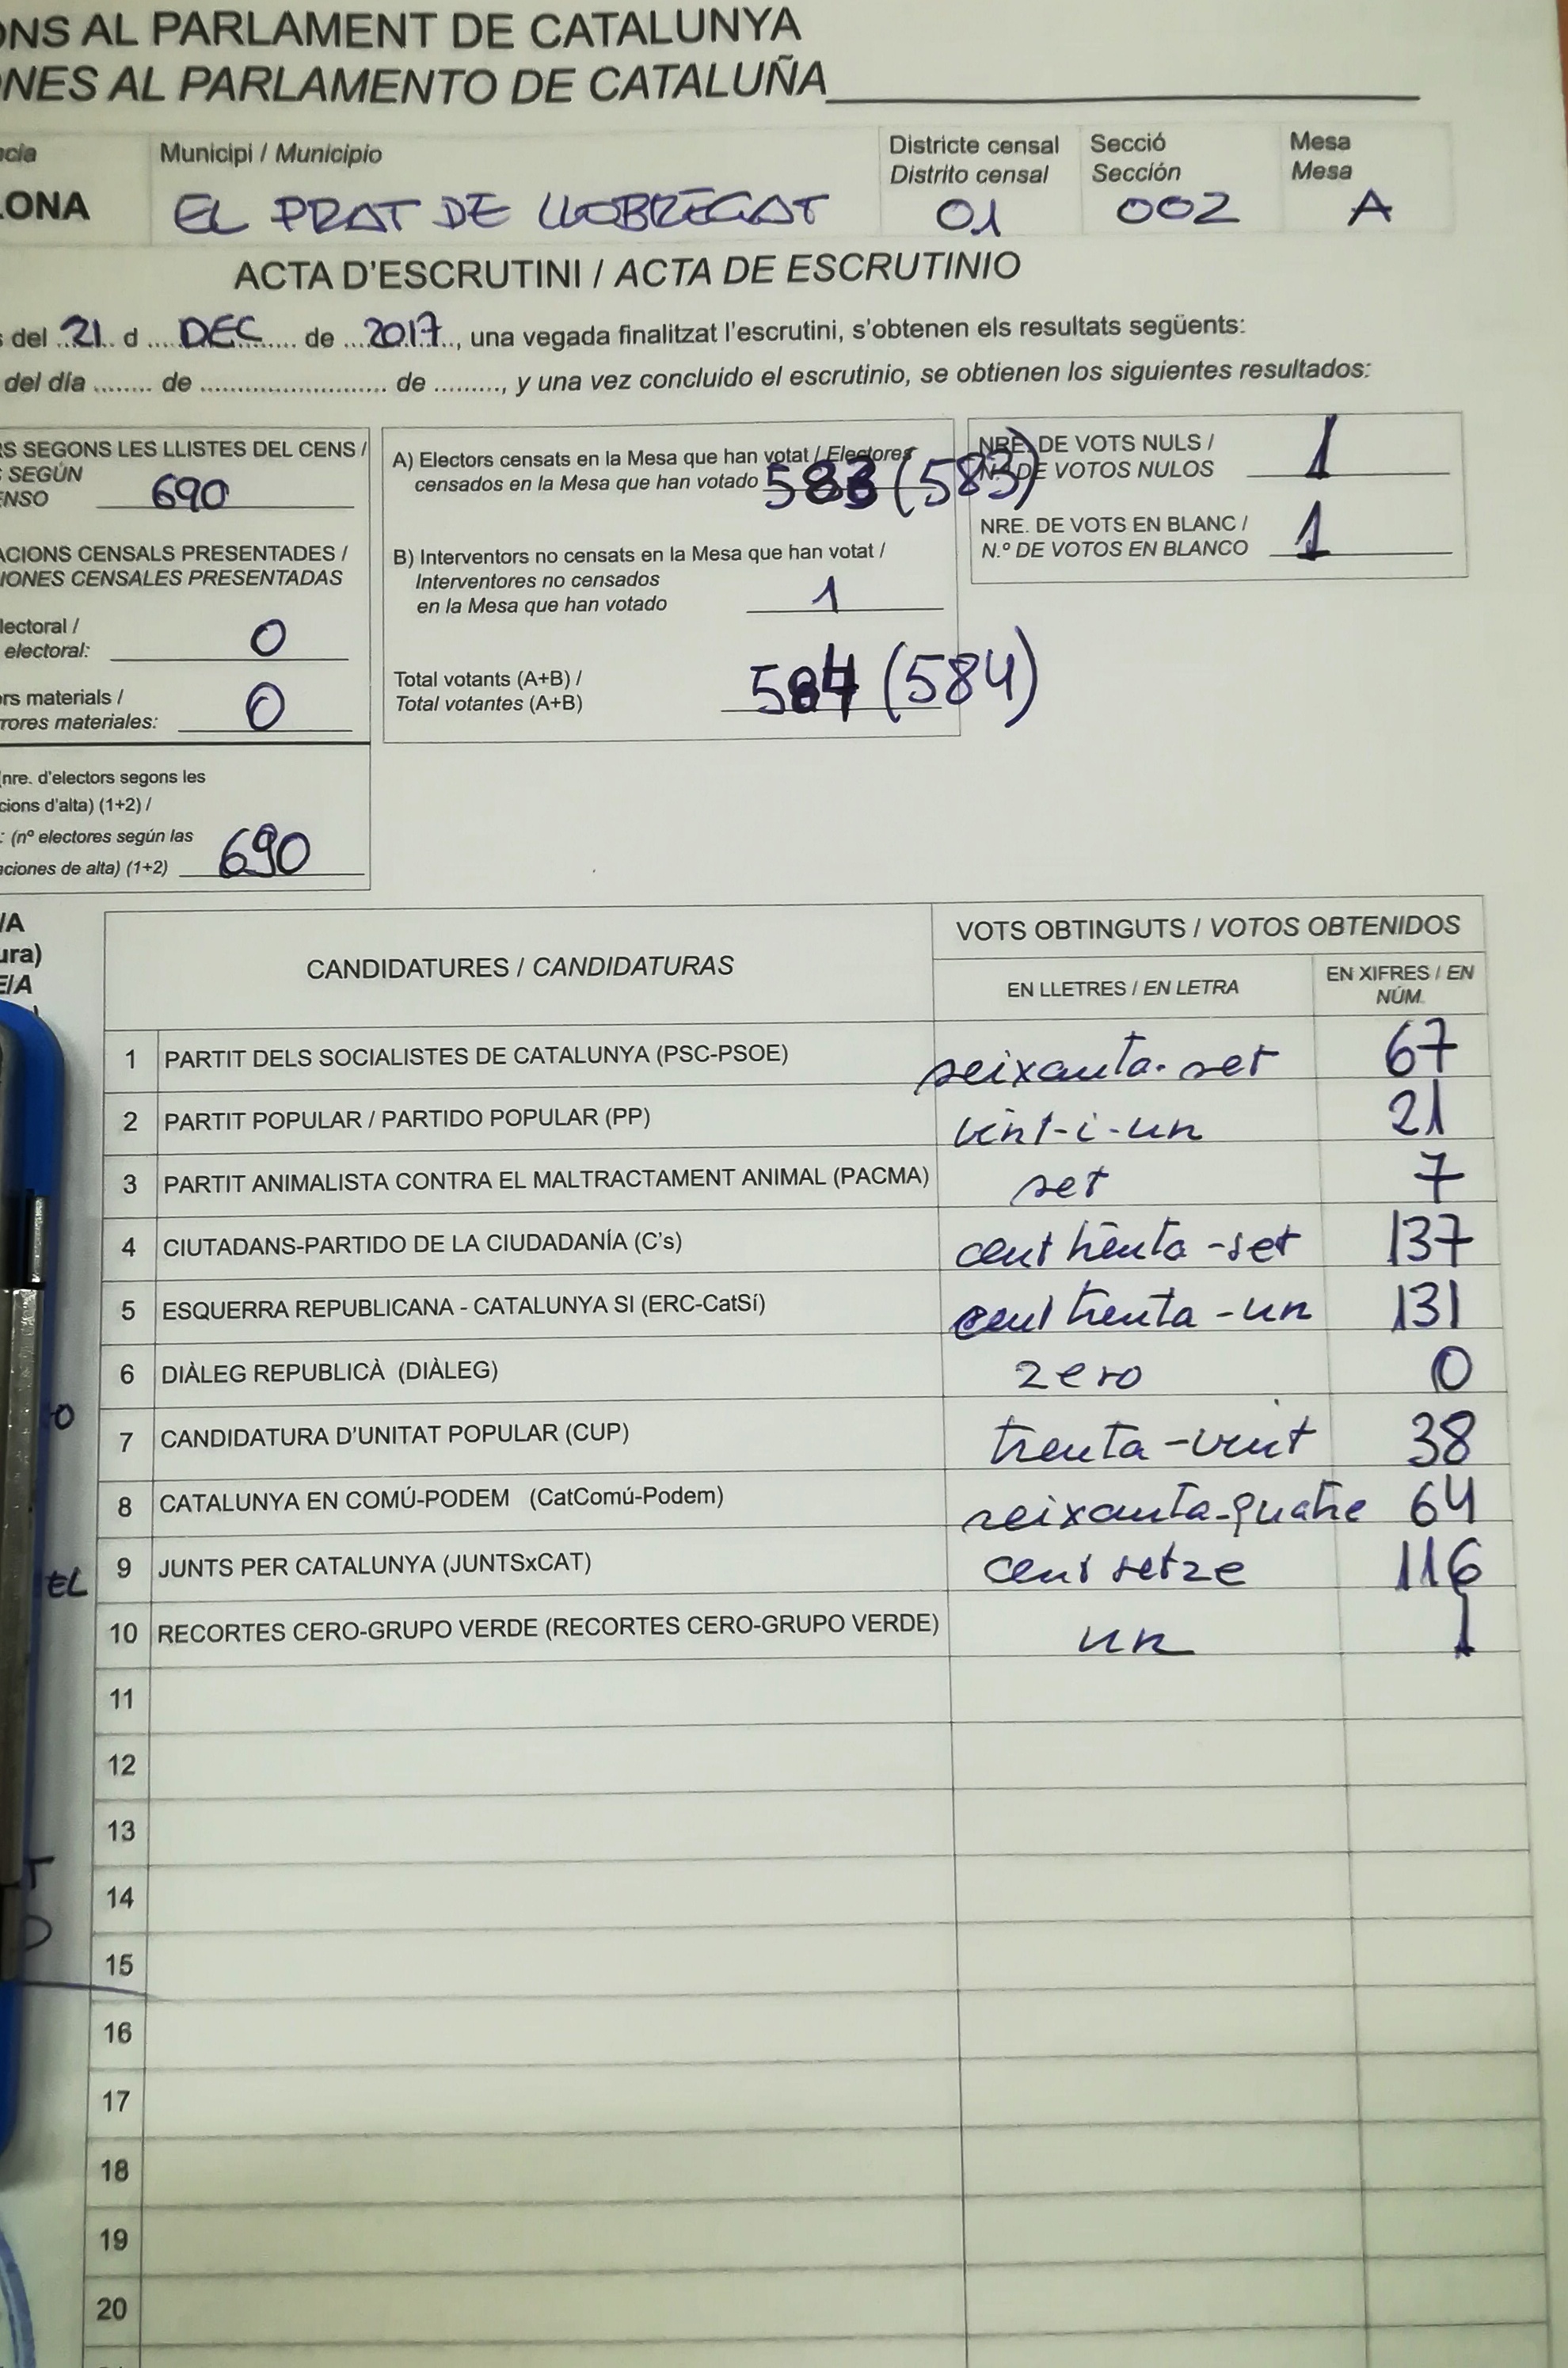 ONS AL PARLAMENT DE CATALUNYA
NES AL PARLAMENTO DE CATALUÑA
ncia
LONA
Municipi / Municipio
EL PRAT DE LLOBREGAT
Districte censal
Distrito censal
01
Secció
Sección
002
Mesa
Mesa
A
ACTA D'ESCRUTINI / ACTA DE ESCRUTINIO
s del 21 d DEC de 2017, una vegada finalitzat l'escrutini, s'obtenen els resultats següents:
del día ........ de ........................ de ........., y una vez concluido el escrutinio, se obtienen los siguientes resultados:
RS SEGONS LES LLISTES DEL CENS /
SEGÚN
ENSO 690
ACIONS CENSALS PRESENTADES /
IONES CENSALES PRESENTADAS
lectoral /
electoral: 0
ors materials /
rrores materiales: 0
(nre. d'electors segons les
cions d'alta) (1+2) /
: (nº electores según las
aciones de alta) (1+2) 690
A) Electors censats en la Mesa que han votat / Electores
censados en la Mesa que han votado 583 (583)
B) Interventors no censats en la Mesa que han votat /
Interventores no censados
en la Mesa que han votado 1
Total votants (A+B) /
Total votantes (A+B) 584 (584)
NRE. DE VOTS NULS /
N.º DE VOTOS NULOS 1
NRE. DE VOTS EN BLANC /
N.º DE VOTOS EN BLANCO 1
/A
ura)
E/A
CANDIDATURES / CANDIDATURAS
VOTS OBTINGUTS / VOTOS OBTENIDOS
EN LLETRES / EN LETRA
EN XIFRES / EN
NÚM.
1 PARTIT DELS SOCIALISTES DE CATALUNYA (PSC-PSOE) seixanta-set 67
2 PARTIT POPULAR / PARTIDO POPULAR (PP) vint-i-un 21
3 PARTIT ANIMALISTA CONTRA EL MALTRACTAMENT ANIMAL (PACMA) set 7
4 CIUTADANS-PARTIDO DE LA CIUDADANÍA (C's) cent trenta-set 137
5 ESQUERRA REPUBLICANA - CATALUNYA SI (ERC-CatSí) cent trenta-un 131
6 DIÀLEG REPUBLICÀ (DIÀLEG) zero 0
7 CANDIDATURA D'UNITAT POPULAR (CUP) trenta-vuit 38
8 CATALUNYA EN COMÚ-PODEM (CatComú-Podem) seixanta-quatre 64
9 JUNTS PER CATALUNYA (JUNTSxCAT) cent setze 116
10 RECORTES CERO-GRUPO VERDE (RECORTES CERO-GRUPO VERDE) un 1
11
12
13
14
15
16
17
18
19
20
O
EL
T